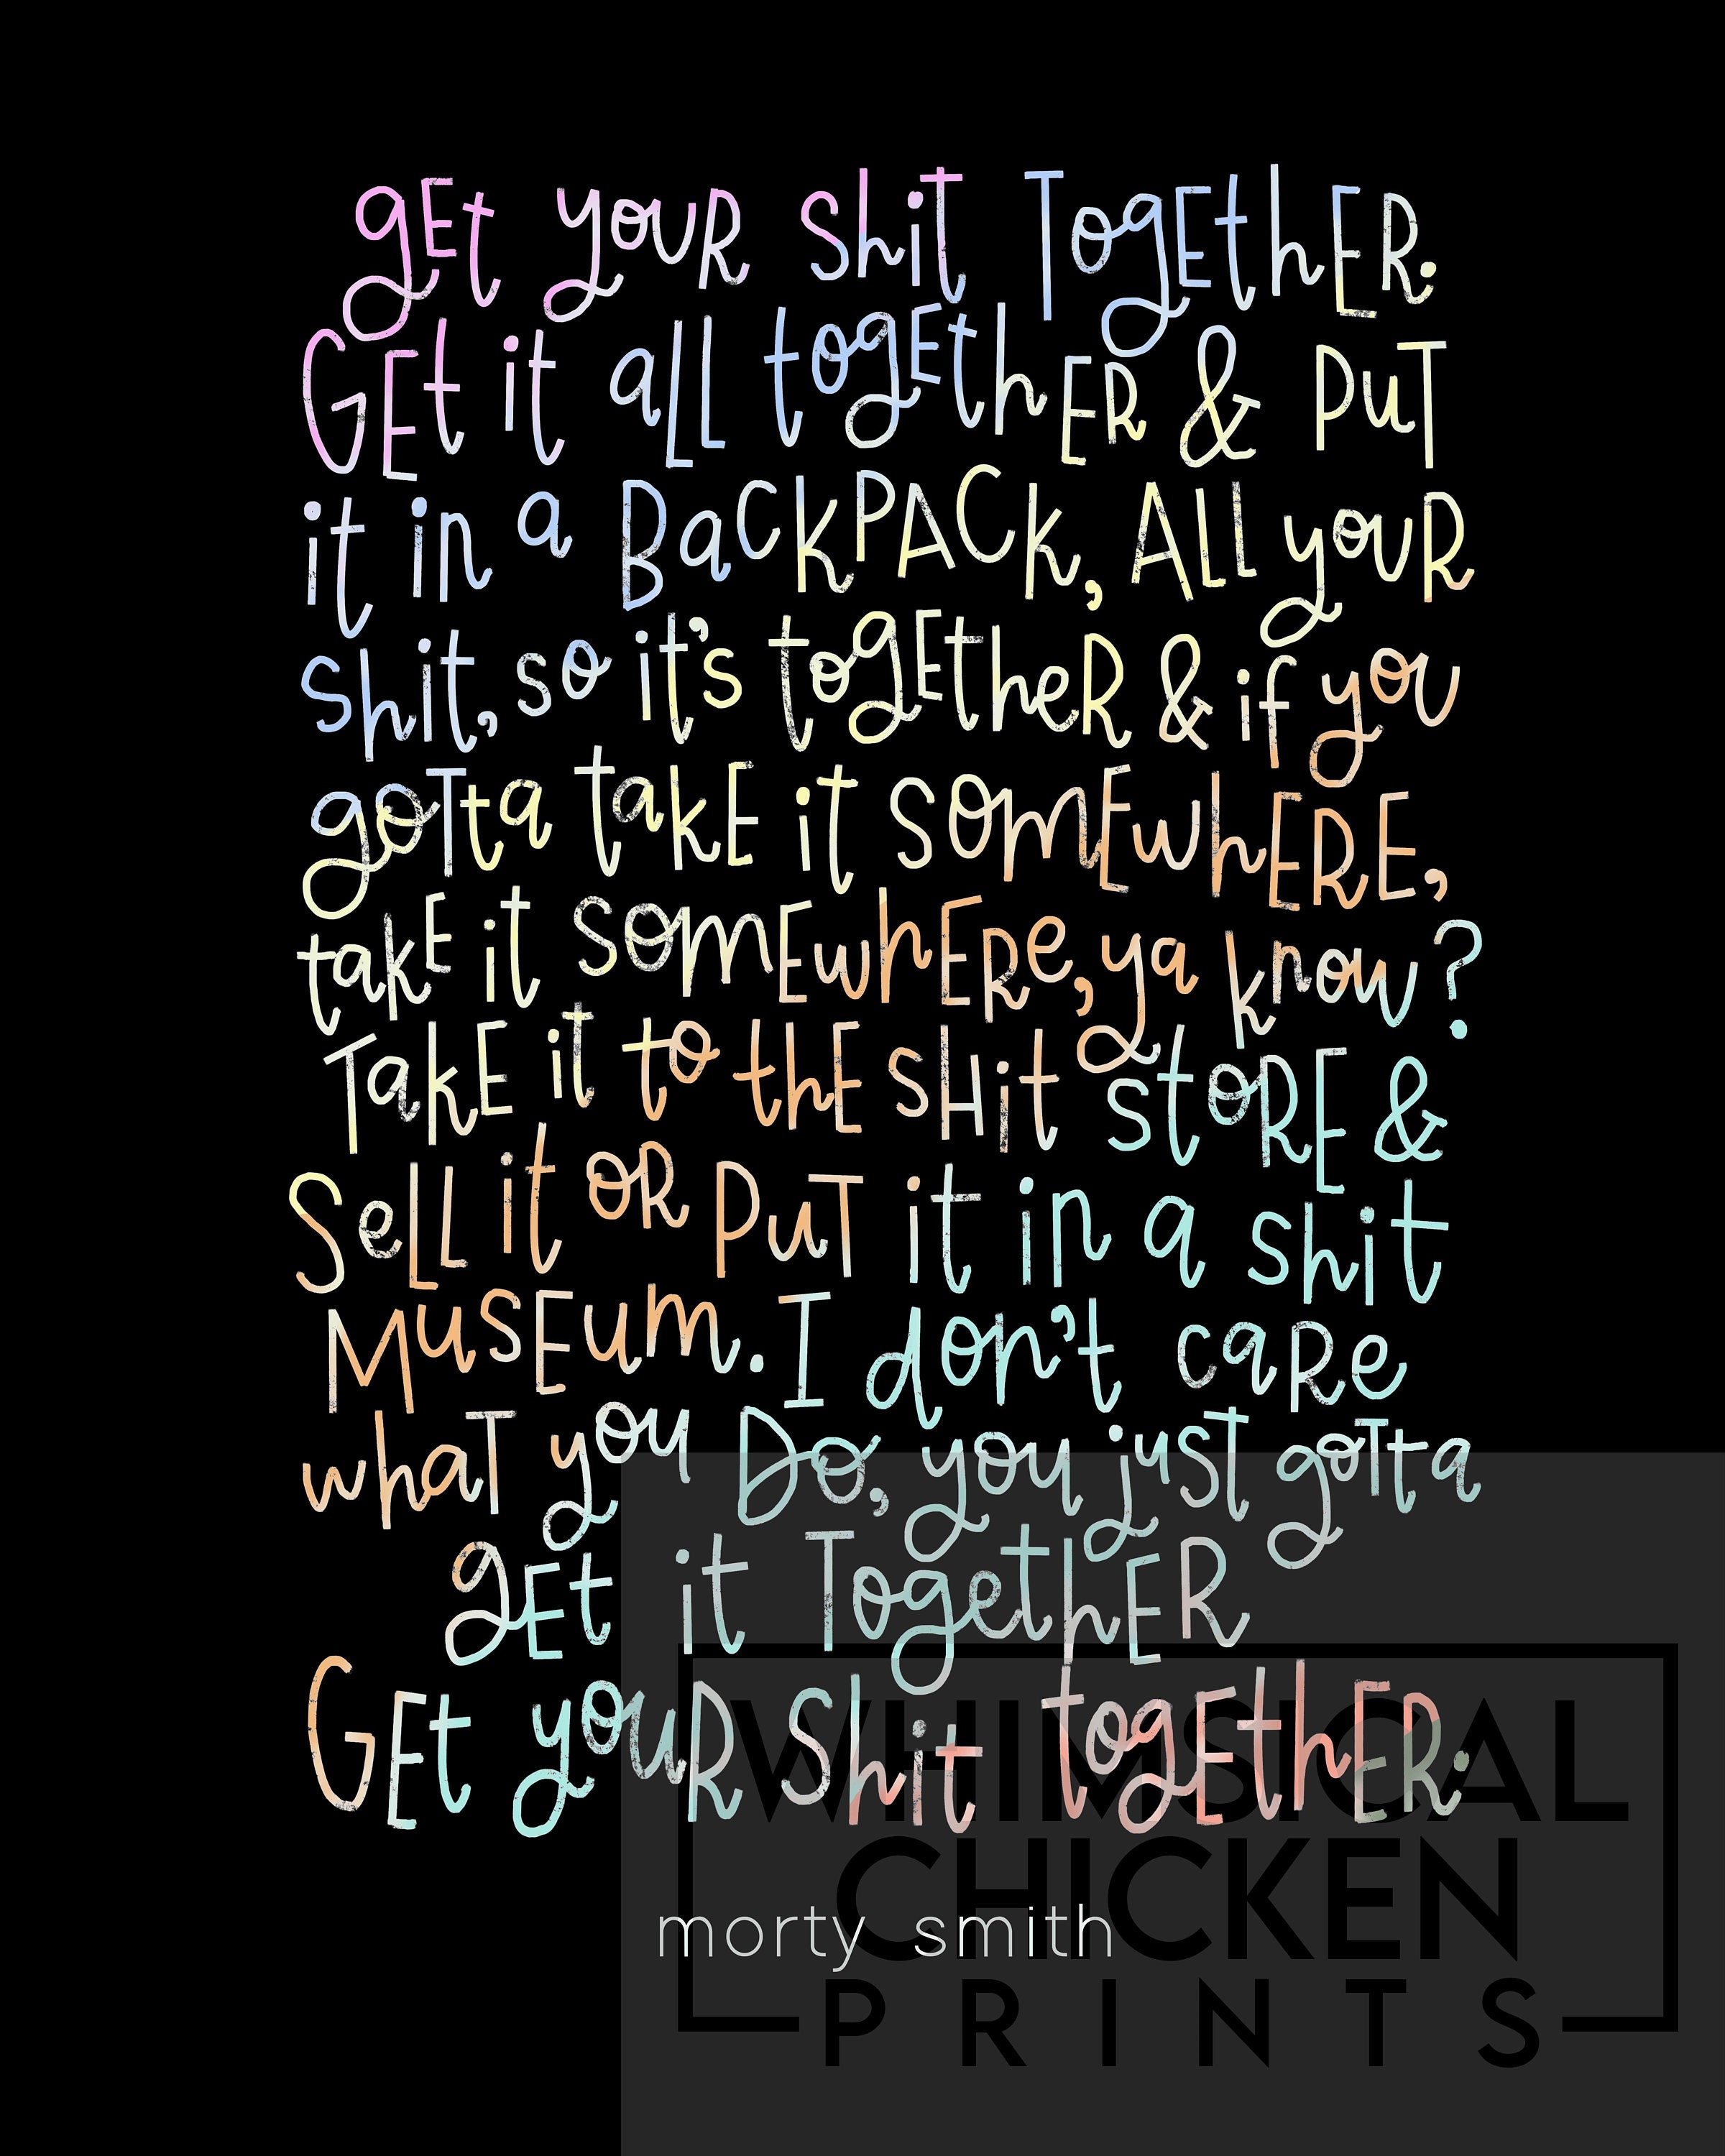 gEt youR shit TogEthER.
GEt it aLL togEthER & PuT
it in a BacKPACk, ALL youR
shit, so it's togEtheR & if you
goTta takE it somEwhERE,
takE it somEwhERe, ya know?
TakE it to thE sHit stoRE &
SeLL it oR PuT it in a shit
MusEum. I don't caRe
whaT you Do, you just goTta
gEt it TogethER
GEt youR Shit togEthER.
morty smith
WHIMSICAL
CHICKEN
PRINTS